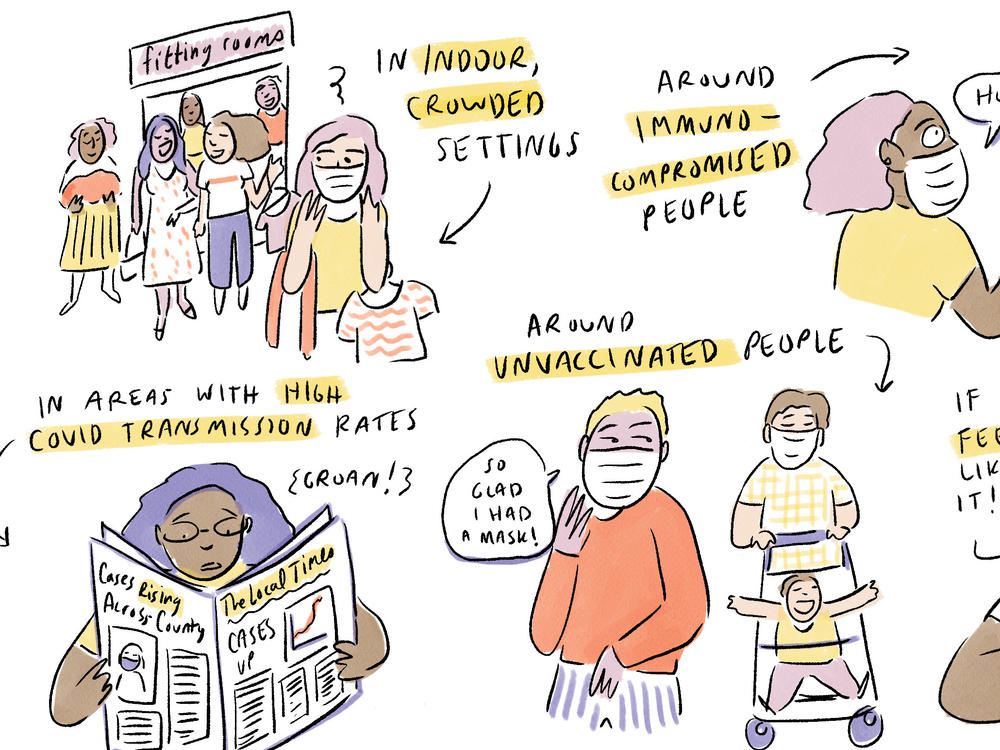 fitting rooms
IN INDOOR,
CROWDED
SETTINGS
AROUND
IMMUNO-
COMPROMISED
PEOPLE
AROUND
UNVACCINATED PEOPLE
IN AREAS WITH HIGH
COVID TRANSMISSION RATES
{GROAN!}
SO
GLAD
I HAD
A MASK!
IF
LIKE
IT!
Cases Rising
Across County
The Local Times
CASES
UP